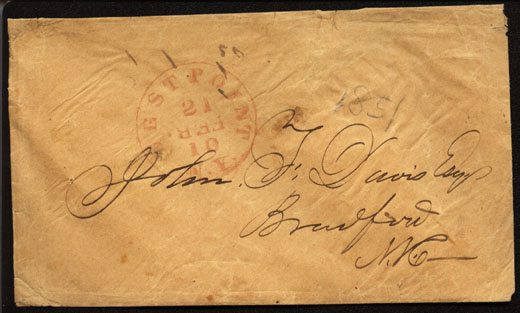 WEST POINT
21
FEB
10
1851
John F. Davis Esq
Bradford
N.H.